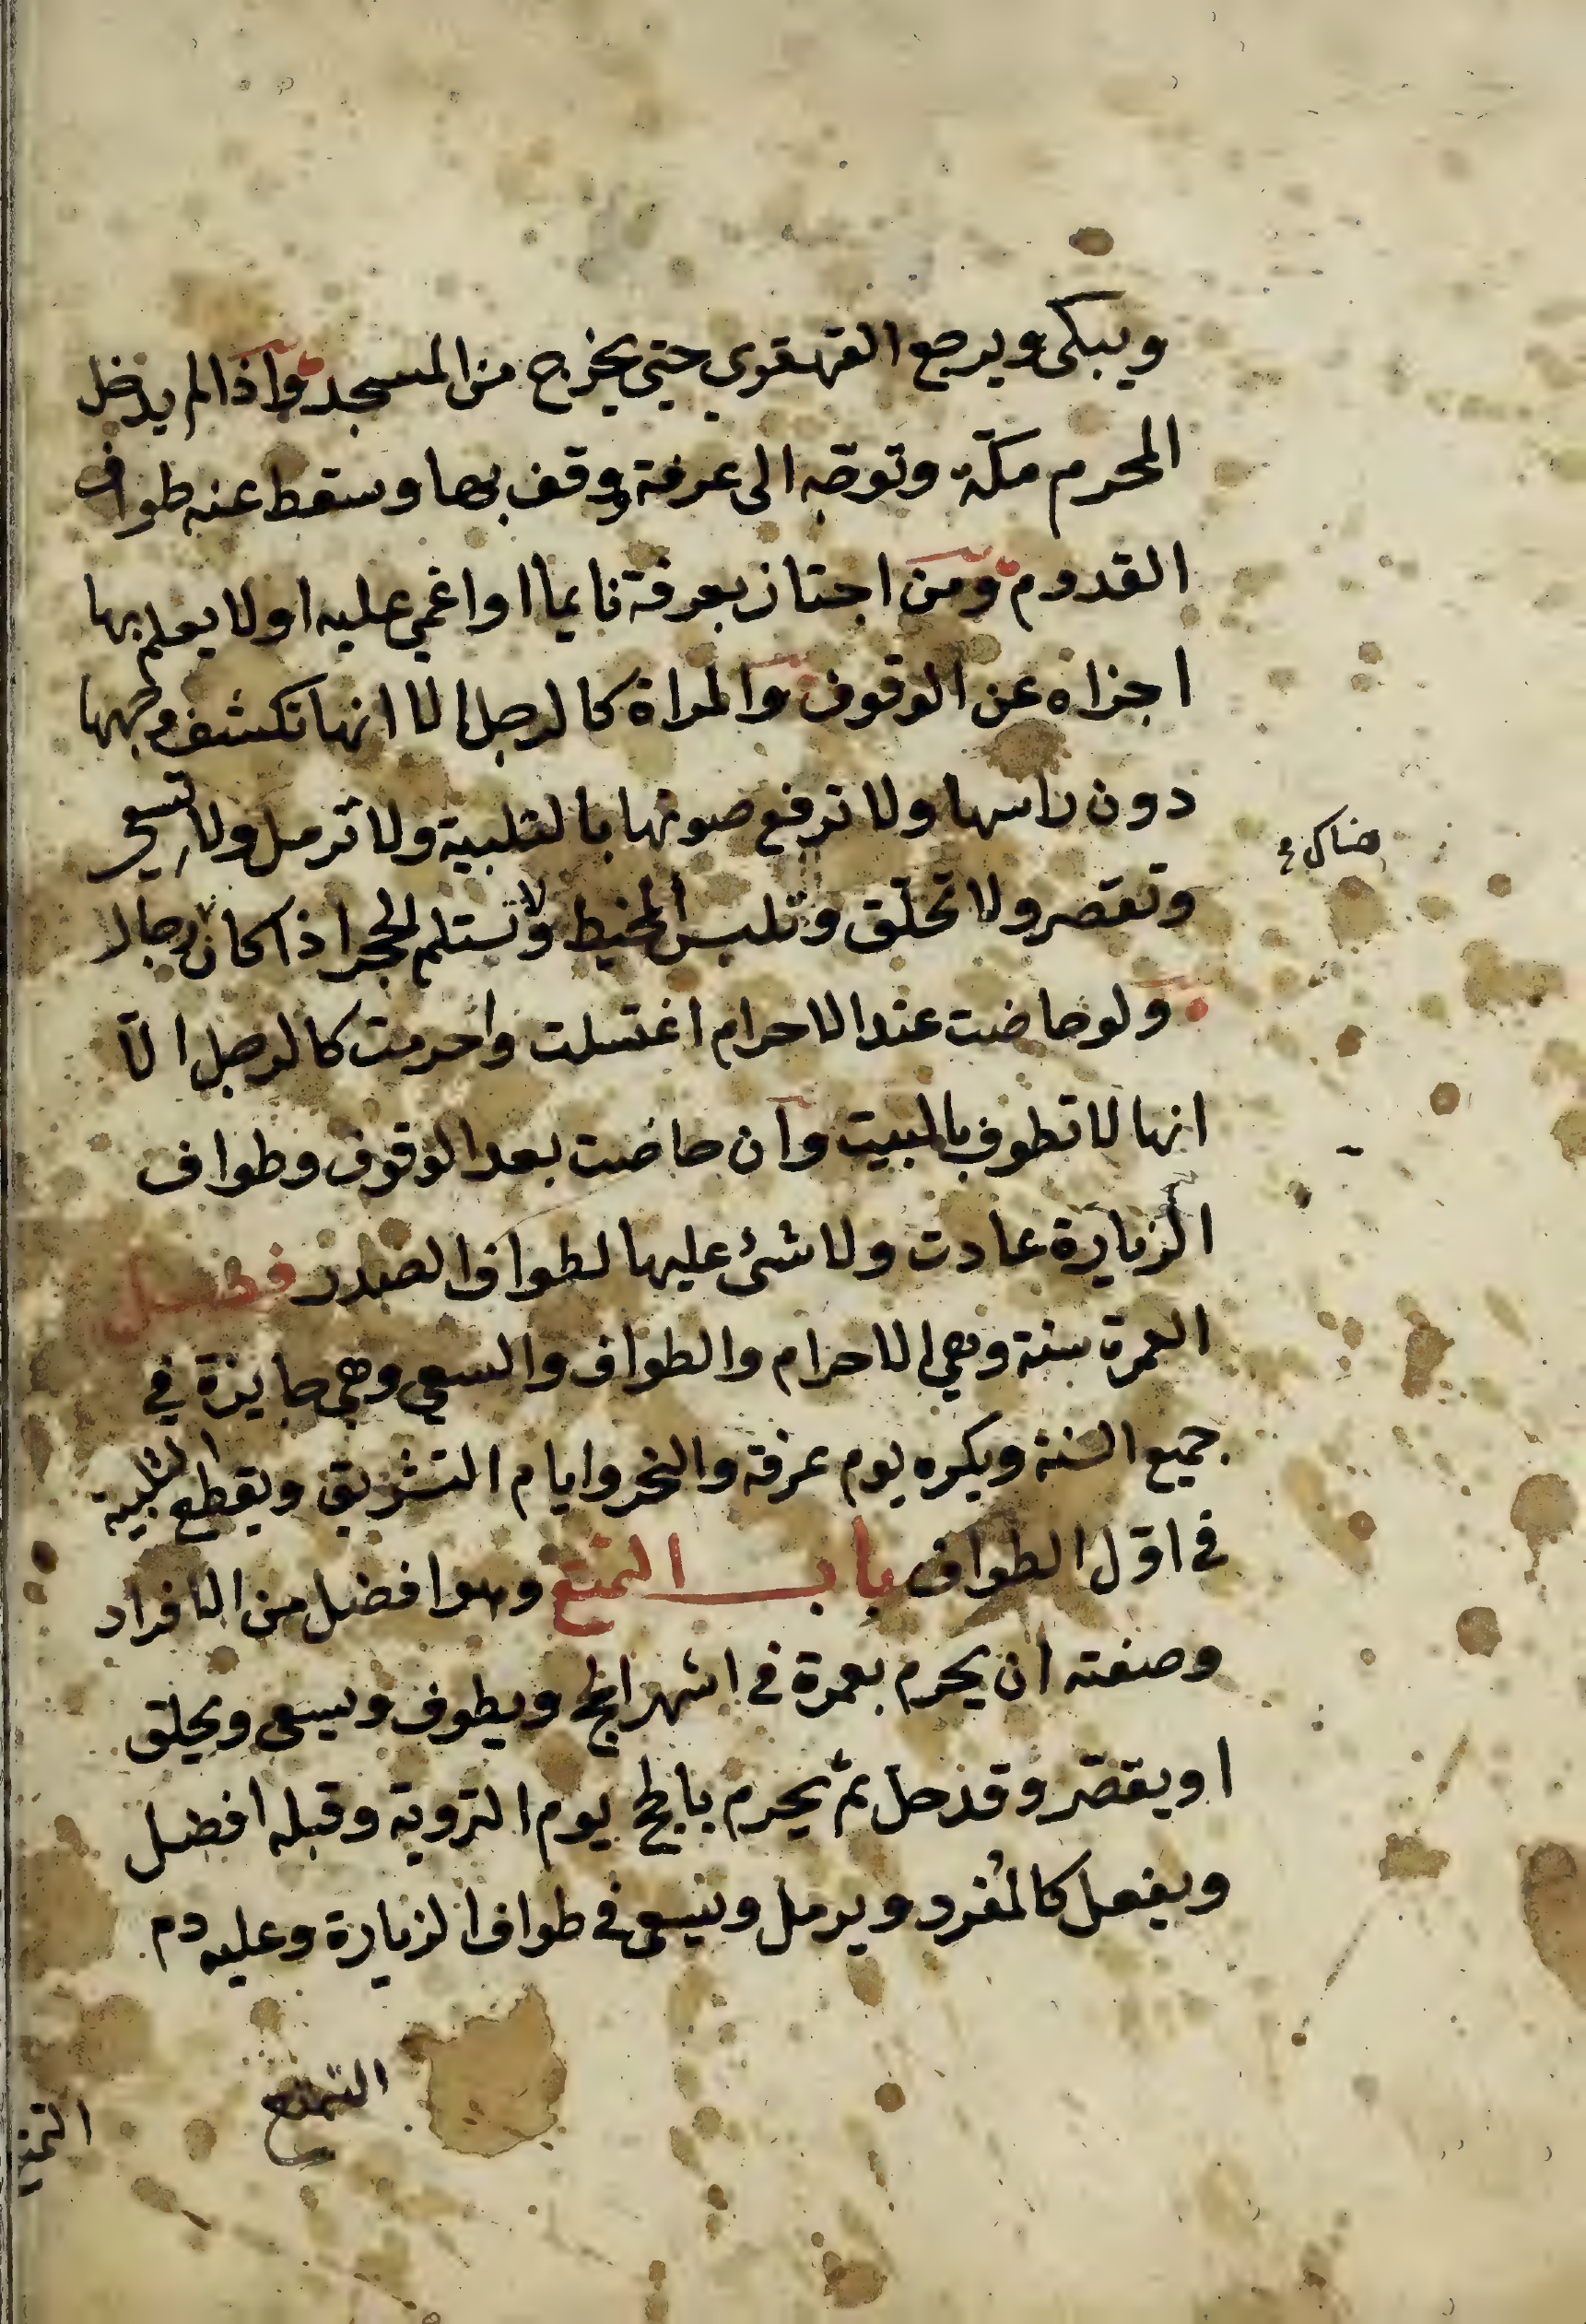 ويبكى ويرجع القهقرى حتى يخرج من المسجد واذا لم يدخل
المحرم مكّة وتوجّه الى عرفة ووقف بها وسقط عنه طواف
القدوم ومن اجتاز بعرفة نايما او اغمي عليه او لا يعلم بها
اجزاه عن الوقوف والمراة كالرجل الا انها تكشف وجهها
دون راسها ولا ترفع صوتها بالتلبية ولا ترمل ولا تسعى
هناك
وتقصر ولا تحلق وتلبس المخيط ولا تستلم الحجر اذا كان رجال
ولو حاضت عند الاحرام اغتسلت واحرمت كالرجل الّا
انها لا تطوف بالبيت وان حاضت بعد الوقوف وطواف
الزيارة عادت ولا شئ عليها لطواف الصدر فصل
العمرة سنة وهي الاحرام والطواف والسعي وهي جايزة في
جميع السنة ويكره يوم عرفة والنحر وايام التشريق ويقطع التلبية
في اوّل الطواف باب التمتع وهو افضل من الافراد
وصفته ان يحرم بعمرة في اشهر الحج ويطوف ويسعى ويحلق
او يقصّر وقد حلّ ثمّ يحرم بالحج يوم التروية وقبله افضل
ويفعل كالمُفرد ويرمل ويسعى في طواف الزيارة وعليه دم
التمتع